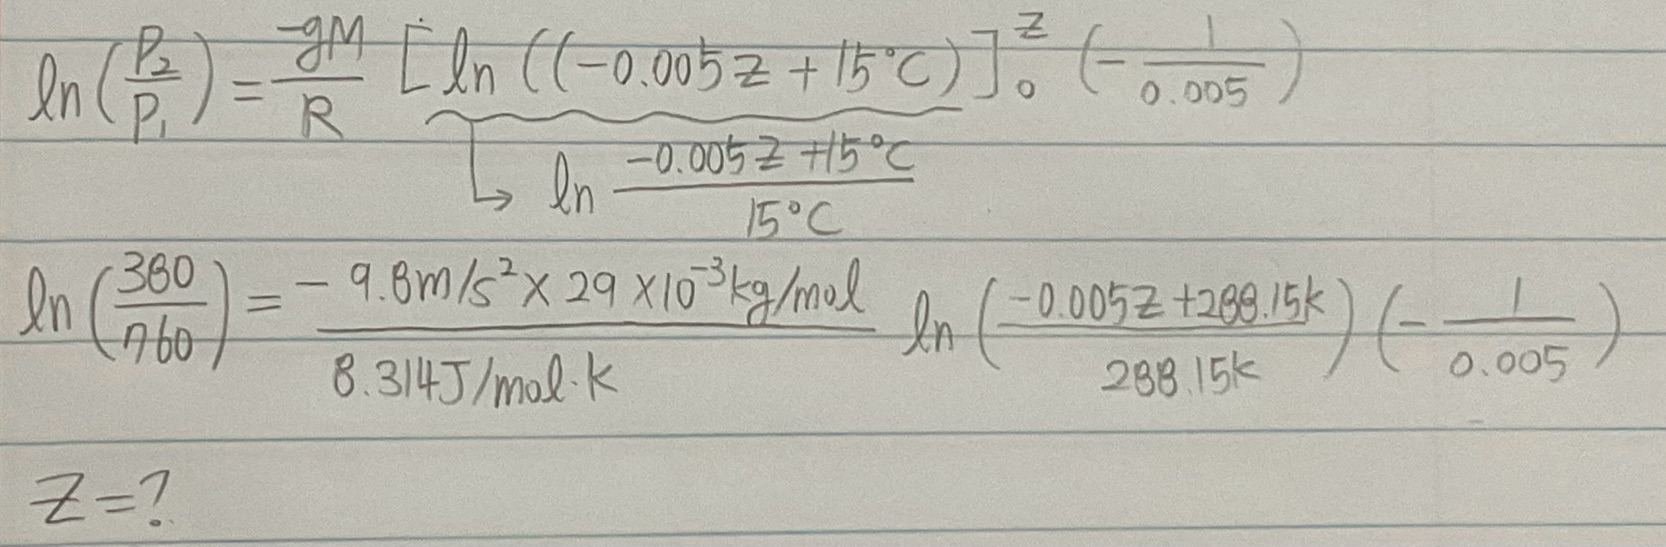 ln(P₂/P₁) = -gM/R [ln((-0.005z + 15°C)]₀ᶻ (-1/0.005)
↳ ln (-0.005z + 15°C)/15°C
ln(380/760) = -9.8m/s² × 29 × 10⁻³kg/mol / 8.314J/mol·k ln(-0.005z + 288.15k / 288.15k) (-1/0.005)
z = ?